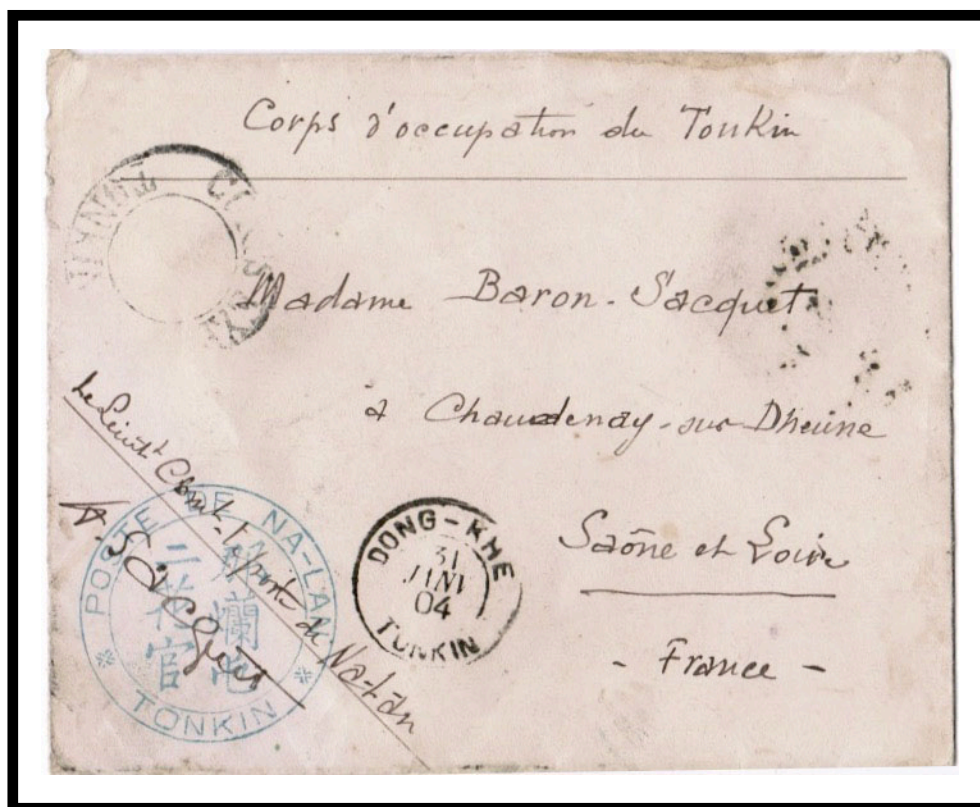 Corps d'occupation du Tonkin
Madame Baron-Sacquet
à Chaudenay-sur-Dheune
Saône et Loire
- France -
Le Lieut<sup>t</sup> Com<sup>t</sup> l poste de Na-Lan
A. Sacquet
POSTE DE NA-LAN
TONKIN
二 官
DONG-KHE
31
JANV
04
TONKIN